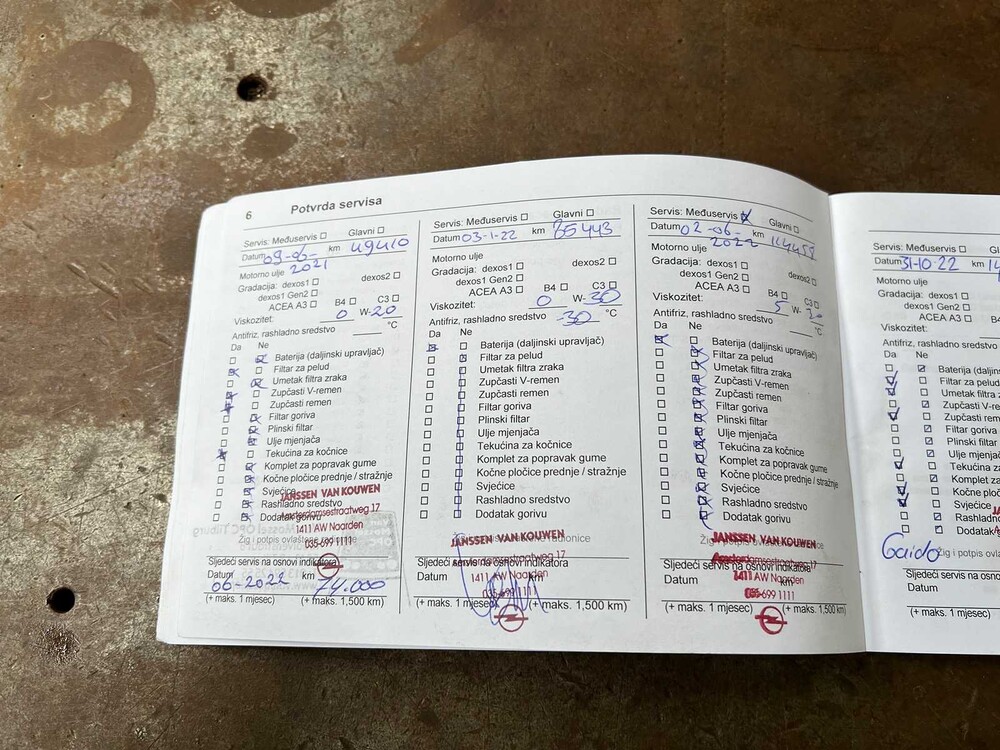 6 Potvrda servisa
Servis: Međuservis ☐ Glavni ☐
Datum 09-06-2021 km 49410
Motorno ulje
Gradacija: dexos1 ☐
dexos1 Gen2 ☐
ACEA A3 ☐ B4 ☐ C3 ☐
Viskozitet: 0 W-20
Antifriz, rashladno sredstvo °C
Da Ne
Baterija (daljinski upravljač)
Filtar za pelud
Umetak filtra zraka
Zupčasti V-remen
Zupčasti remen
Filtar goriva
Plinski filtar
Ulje mjenjača
Tekućina za kočnice
Komplet za popravak gume
Kočne pločice prednje / stražnje
Svjećice
Rashladno sredstvo
Dodatak gorivu
JANSSEN VAN KOUWEN
Amsterdamsestraatweg 17
1411 AW Naarden
035-699 1111
Sljedeći servis na osnovi indikatora
Datum km
06-2022 74.000
(+ maks. 1 mjesec) (+ maks. 1,500 km)
Servis: Međuservis ☐ Glavni ☐
Datum 03-1-22 km 85443
Motorno ulje
Gradacija: dexos1 ☐ dexos2 ☐
dexos1 Gen2 ☐
ACEA A3 ☐ B4 ☐ C3 ☐
Viskozitet: 0 W-30
Antifriz, rashladno sredstvo -30 °C
Da Ne
Baterija (daljinski upravljač)
Filtar za pelud
Umetak filtra zraka
Zupčasti V-remen
Zupčasti remen
Filtar goriva
Plinski filtar
Ulje mjenjača
Tekućina za kočnice
Komplet za popravak gume
Kočne pločice prednje / stražnje
Svjećice
Rashladno sredstvo
Dodatak gorivu
JANSSEN VAN KOUWEN
Sljedeći servis na osnovi indikatora
Amsterdamsestraatweg 17
Datum 1411 AW Naarden km
035-699 1111
(+ maks. 1 mjesec) (+ maks. 1,500 km)
Servis: Međuservis ☒ Glavni ☐
Datum 02-06-2022 km 114459
Motorno ulje
Gradacija: dexos1 ☐ dexos2 ☐
dexos1 Gen2 ☐
ACEA A3 ☐ B4 ☐ C3 ☐
Viskozitet: 5 W-
Antifriz, rashladno sredstvo °C
Da Ne
Baterija (daljinski upravljač)
Filtar za pelud
Umetak filtra zraka
Zupčasti V-remen
Zupčasti remen
Filtar goriva
Plinski filtar
Ulje mjenjača
Tekućina za kočnice
Komplet za popravak gume
Kočne pločice prednje / stražnje
Svjećice
Rashladno sredstvo
Dodatak gorivu
JANSSEN VAN KOUWEN
Amsterdamsestraatweg 17
Sljedeći servis na osnovi indikatora
Datum 1411 AW Naarden km
035-699 1111
(+ maks. 1 mjesec) (+ maks. 1,500 km)
Servis: Međuservis ☐
Datum 31-10-22 km
Motorno ulje
Gradacija: dexos1 ☐
dexos1 Gen2 ☐
ACEA A3 ☐
Viskozitet:
Antifriz, rashladno sredstvo
Da Ne
Baterija
Filtar za pelud
Umetak
Zupčasti V-re
Zupčasti
Filtar goriva
Plinski filtar
Tekućina
Komplet
Kočne
Svjećice
Rashladno
Dodatak
Sljedeći servis na osno
Datum
(+ maks. 1 mjesec)